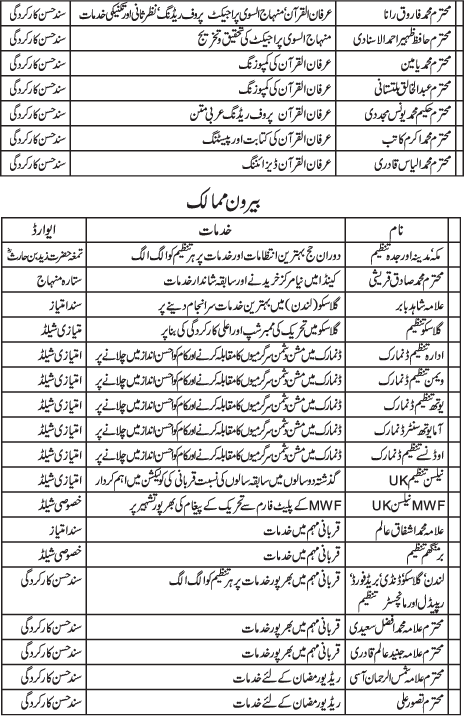 محترم محمد فاروق رانا عرفان القرآن‘ منہاج السوی پراجیکٹ پروف ریڈنگ‘ نظر ثانی اور تکنیکی خدمات سند حسن کارکردگی
محترم حافظ ظہیر احمد الاسنادی منہاج السوی پراجیکٹ کی تحقیق و تخریج سند حسن کارکردگی
محترم محمد یامین عرفان القرآن کی کمپوزنگ سند حسن کارکردگی
محترم عبدالخالق ملتستانی عرفان القرآن کی کمپوزنگ سند حسن کارکردگی
محترم حکیم محمد یونس مجددی عرفان القرآن پروف ریڈنگ عربی متن سند حسن کارکردگی
محترم محمد اکرم کاتب عرفان القرآن کی کتابت اور پیسٹنگ سند حسن کارکردگی
محترم محمد الیاس قادری عرفان القرآن ڈیزائننگ سند حسن کارکردگی
بیرون ممالک
نام خدمات ایوارڈ
مکہ‘ مدینہ اور جدہ تنظیم دوران حج بہترین انتظامات اور خدمات پر ہر تنظیم کو الگ الگ تمغہ حضرت زید بن حارثؓ
محترم محمد صادق قریشی کینڈا میں نیا مرکز خریدنے اور سابقہ شاندار خدمات ستارہ منہاج
علامہ شاہد بابر گلاسکو (لندن) میں بہترین خدمات سرانجام دینے پر سند امتیاز
گلاسکو تنظیم گلاسکو میں تحریک کی ممبر شپ اور اعلیٰ کارکردگی کی بنا پر متیازی شیلڈ
ادارہ تنظیم ڈنمارک ڈنمارک میں مشن دشمن سرگرمیوں کا مقابلہ کرنے اور کام کو احسن انداز میں چلانے پر امتیازی شیلڈ
ویمن تنظیم ڈنمارک ڈنمارک میں مشن دشمن سرگرمیوں کا مقابلہ کرنے اور کام کو احسن انداز میں چلانے پر امتیازی شیلڈ
یوتھ تنظیم ڈنمارک ڈنمارک میں مشن دشمن سرگرمیوں کا مقابلہ کرنے اور کام کو احسن انداز میں چلانے پر امتیازی شیلڈ
آما یوتھ سنٹر ڈنمارک ڈنمارک میں مشن دشمن سرگرمیوں کا مقابلہ کرنے اور کام کو احسن انداز میں چلانے پر امتیازی شیلڈ
اوڈنسے تنظیم ڈنمارک ڈنمارک میں مشن دشمن سرگرمیوں کا مقابلہ کرنے اور کام کو احسن انداز میں چلانے پر امتیازی شیلڈ
نیلسن تنظیم UK گذشتہ دو سالوں میں سابقہ سالوں کی نسبت قربانی کی کولیکشن میں اہم کردار امتیازی شیلڈ
MWF نیلسن UK MWF کے پلیٹ فارم سے تحریک کے پیغام کی بھرپور تشہیر پر خصوصی شیلڈ
علامہ محمد اشفاق عالم قربانی مہم میں خدمات سند امتیاز
برمنگھم تنظیم قربانی مہم میں خدمات خصوصی شیلڈ
لندن‘ گلاسکو‘ ڈنڈی‘ بریڈفورڈ‘ قربانی مہم میں بھرپور خدمات پر ہر تنظیم کو الگ الگ سند حسن کارکردگی
ریپڈیل اور مانچسٹر تنظیم
محترم علامہ محمد افضل سعیدی قربانی مہم میں بھرپور خدمات سند حسن کارکردگی
محترم علامہ جنید عالم قادری قربانی مہم میں بھرپور خدمات سند حسن کارکردگی
محترم علامہ شمس الرحمان آسی ریڈیو رمضان کے لئے خدمات سند حسن کارکردگی
محترم تصور علی ریڈیو رمضان کے لئے خدمات سند حسن کارکردگی